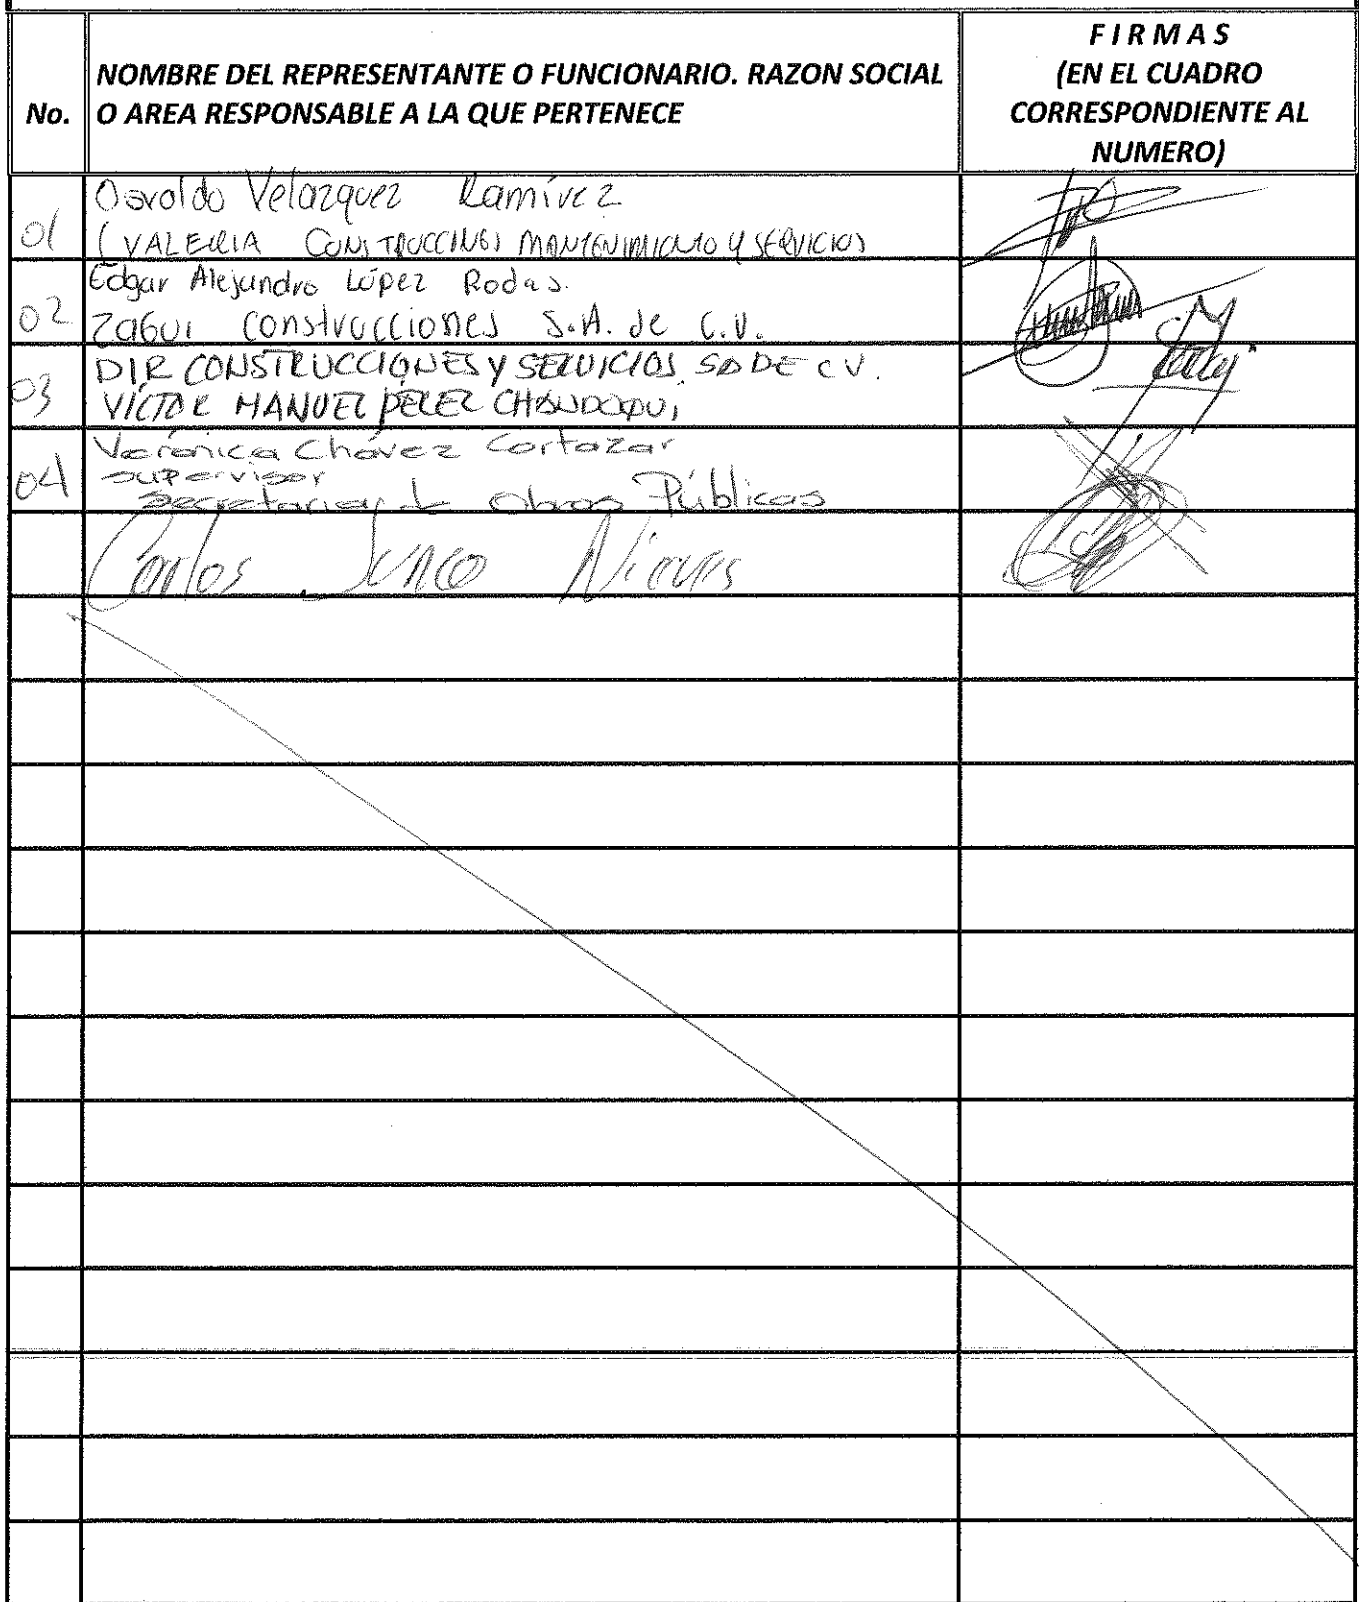 No.
NOMBRE DEL REPRESENTANTE O FUNCIONARIO. RAZON SOCIAL
O AREA RESPONSABLE A LA QUE PERTENECE
F I R M A S
(EN EL CUADRO
CORRESPONDIENTE AL
NUMERO)
01
Osvaldo Velazquez Ramírez
(VALERIA CONSTRUCCINES MANTENIMIENTO Y SERVICIOS
02
Edgar Alejandro López Rodas.
Zagui Construcciones S.A. de C.V.
03
DIR CONSTRUCCIONES Y SERVICIOS SA DE CV.
VÍCTOR MANUEL PÉREZ
04
Verónica Chávez Cortazar
supervisor
Secretaría de Obras Públicas
Carlos Junco Nieves